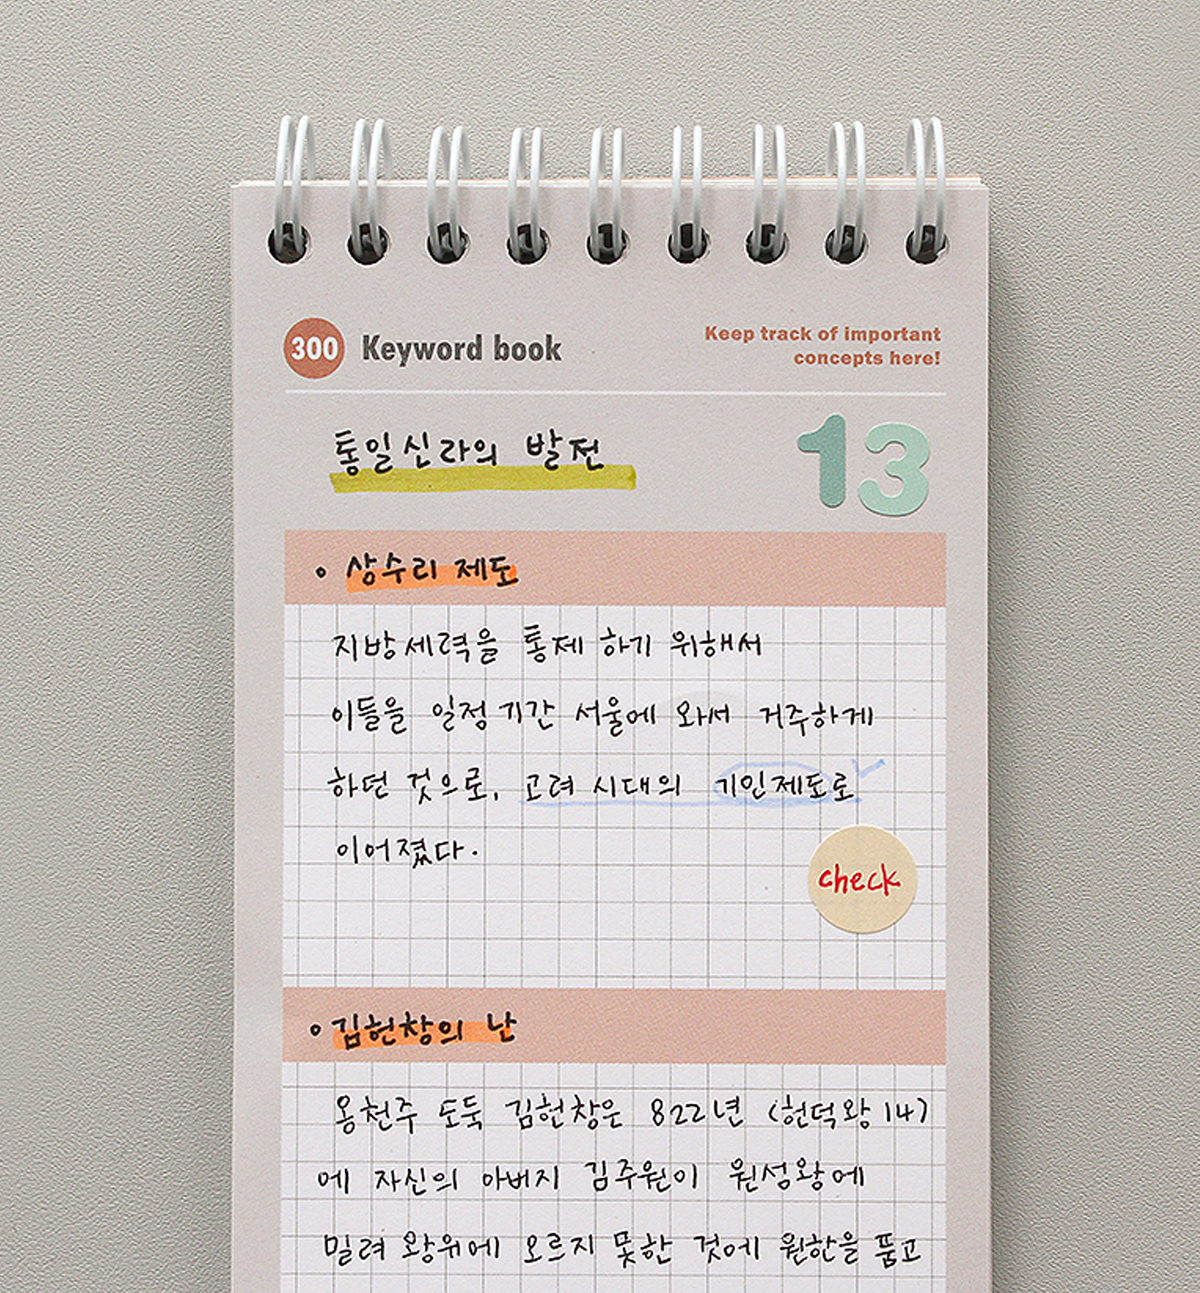 300 Keyword book
Keep track of important
concepts here!
통일신라의 발전
13
• 상수리 제도
지방세력을 통제 하기 위해서
이들을 일정 기간 서울에 와서 거주하게
하던 것으로, 고려 시대의 기인제도로
이어졌다.
check
• 김헌창의 난
웅천주 도독 김헌창은 822년 (헌덕왕 14)
에 자신의 아버지 김주원이 원성왕에
밀려 왕위에 오르지 못한 것에 원한을 품고